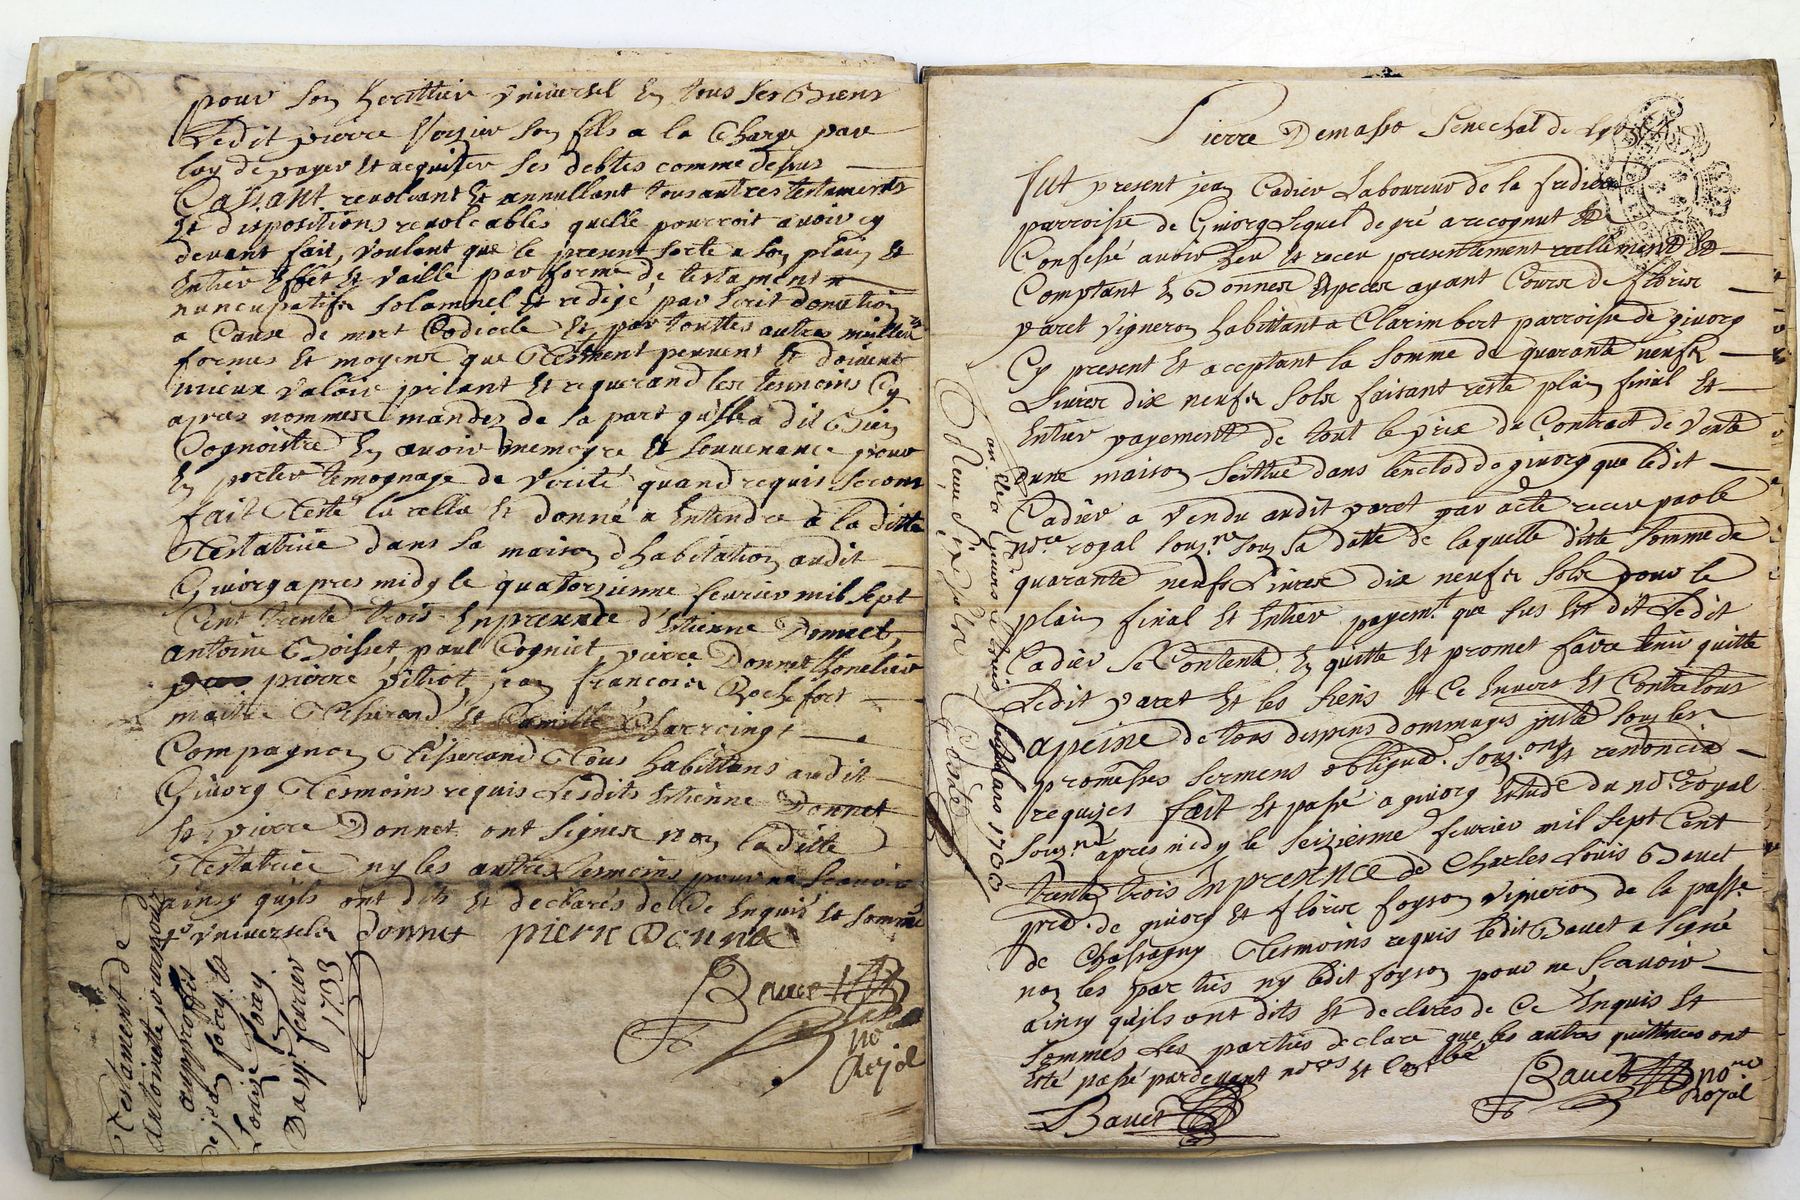 pour son herittier universel En tous ses Biens
Ledit pierre son fils a la Charge par
luy de payer Et acquiter ses debtes comme desus
Cassant revoliant Et annullant tous autres testaments
Et dispositions revoicables quelle pourroit avoir cy
devant fait, voulant que le present sorte a son plain Et
Entier Effet Et vaille par forme de testament
nuncupatifs solamnel Et redigé par Ecrit donnation
a Cause de mort Codicile Et par touttes autres meilleures
formes Et moyens que Testament peuvent Et doivent
mieux valoir priant Et requerand les tesmoins Cy
apres nommes mandes de sa part qu'elle a dit Bien
Cognoistre En avoir memoyre Et souvenance pour
En porter temognage de verité quand requis seront
fait Testé lu rellu Et donné a Entendre a la ditte
Testatrice dans sa maison d'habitation audit
Givors apres midy le quatorzieme fevrier mil sept
Cent trente trois En presence d'Estienne Donnet,
antoine Boisset paul Cogniet pierre Donnet
pierre pitiot jean francois Rochefort
maitre Tisserand Et Camille Charreingt
Compagnon Tisserand Tous habittans audit
Givors Tesmoins requis Lesdits Estienne Donnet
Et pierre Donnet ont signes non laditte
Testatrice ny les autres tesmoins pour ne scavoir
ainsy qu'ils ont dits Et declarés de Ce Enquis Et sommé
universels donnet pierre Donnet
Bauet
no.re
Royal
Testament de
Antoinette
au proffit
de jean forey et
Louise forey
Du 14.e fevrier
1733
Pierre Demasso Senechal de Lyon
fut present jean Cadier Laboureur de la fredière
parroisse de Givors Lequel de gré a recognut Et
Confessé avoir heu Et receu presentement reellement Et
Comptant En Bonnes Especes ayant Cours de floris
paret vigneron habittant a Clarimbert parroisse de givors
Cy present Et aceptant la somme de quarante neufs
Livres dix neufs sols faisant reste plain final Et
Entier payement de tout le prix du Contract de Vente
dune maison scittué dans lenclod de givors que ledit
Cadier a vendu audit paret par acte receu par le
no.re royal sous.né sous sa datte de laquelle ditte somme de
quarante neufs Livres dix neufs sols pour le
plain final Et Entier payem.t que sus Est dit Ledit
Cadier se Contente En quitte Et promet faire tenir quitte
Ledit paret Et les siens Et Ce Envers Et Contre tous
apeine de tous despens dommages juste sous les
promesses sermens obligaō. sous.ons Et renonciā
requises fait Et passé a givors Estude du no.re royal
sous.né apres midy le seizieme fevrier mil sept Cent
trente trois En presence de Charles Louis Bauet
prād. de givors Et floris foyson vigneron de la passe
de Chassagny Tesmoins requis ledit Bauet a signé
non les parties ny ledit foyson pour ne scavoir
ainsy quils ont dits Et declares de Ce Enquis Et
sommes Les parties declare que les autres quittences ont
Esté passé pardevant no.res Et
Bauet
Bauet no.re
Royal
Givors
1700